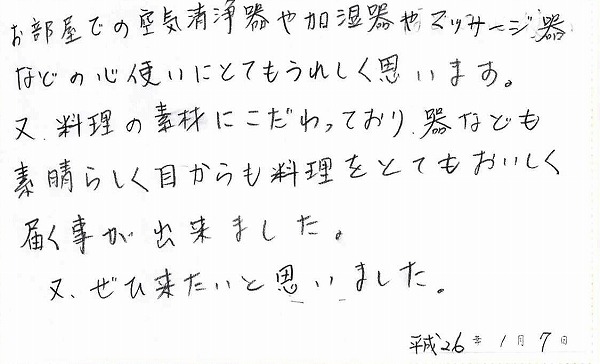 お部屋での空気清浄器や加湿器やマッサージ器
などの心使いにとてもうれしく思います。
又、料理の素材にこだわっており、器なども
素晴らしく目からも料理をとてもおいしく
届く事が出来ました。
又、ぜひ来たいと思いました。
平成26年1月7日